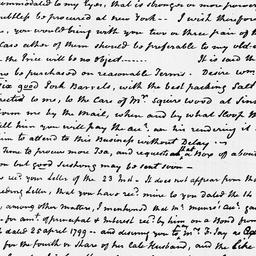 commodated to my Eyes, that is stronger or more power
doubtless be procured at new York -- I wish therefore
you would bring with you two or three pair of th
Case either of them should be preferable to my old
the Price will be no object
It is said th
to be purchased on reasonable Terms. Desire Wm
Six good Pork Barrels, with the best packing Salt
rected to me, to the Care of Mr. Squire Wood at Sing
from me by the Mail, when and by what Sloop th
tell him you will pay the acct. on his rendering it
him to attend to this Business without Delay
Time to procure more Tea, and request a Box of about
but good Suchong may be sent soon
recd. your Letter of the 23 Inst. It does not appear from th
ceding Letter, that you have recd. mine to you dated the th
, among other matter, I mentioned that Mr. Munro's acct. ga
for amt. of principal & Interest recd. by him on a Bond from
dated 25 april 1799 -- and desiring you to Mr. P. Jay as
for the fourth or share of her late Husband, and the like